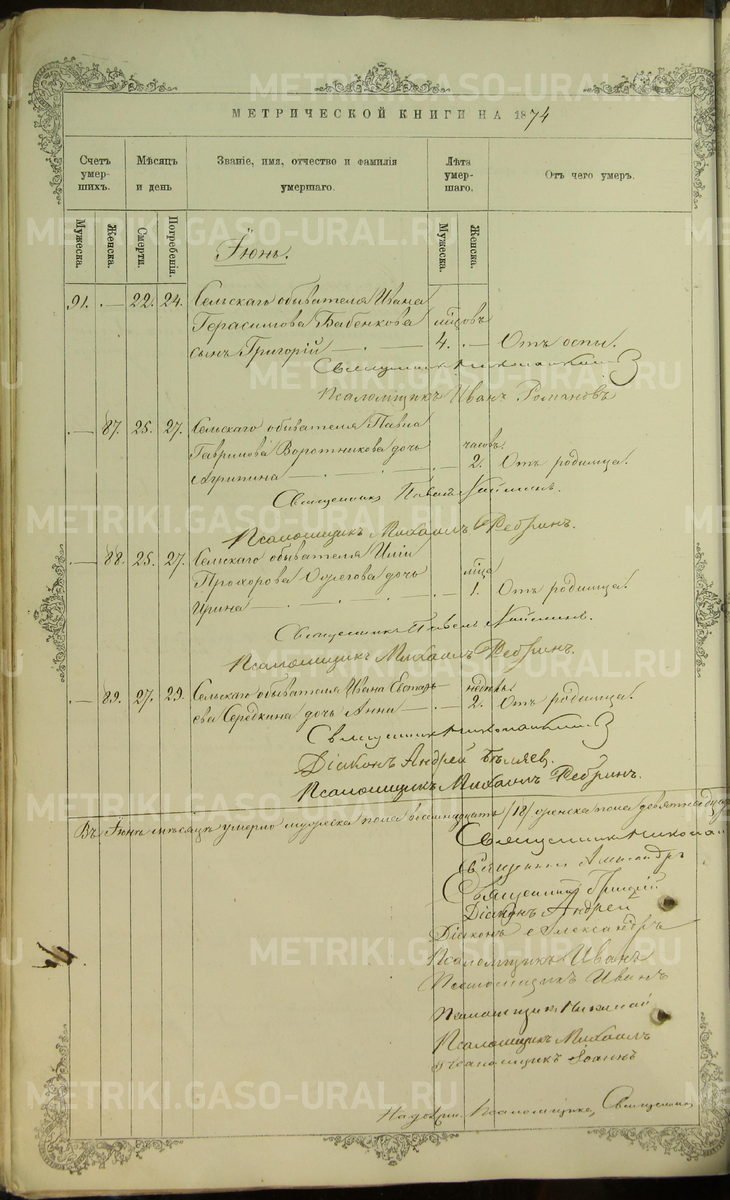 МЕТРИЧЕСКОЙ КНИГИ НА 1874
Счетъ умер- шихъ.
Мѣсяцъ и день
Званіе, имя, отчество и фамилія умершаго.
Лѣта умер- шаго.
Отъ чего умеръ.
Мужеска.
Женска.
Смерти.
Погребенія.
Мужеска.
Женска.
Іюнь.
91. — 22. 24. Сельскаго обывателя Ивана
Герасимова Бабенкова
сынъ Григорій — 4. — Отъ оспы.
Священникъ
Псаломщикъ Иванъ Романовъ
— 87. 25. 27. Сельскаго обывателя Павла
Гаврилова Воротникова дочь часовъ.
Агрипина — 2. Отъ родимца.
Священникъ Павелъ
Псаломщикъ Михаилъ Ребринъ.
— 88. 25. 27. Сельскаго обывателя Иліи
Прохорова дочь
Ирина — 1. Отъ родимца.
Священникъ Павелъ
Псаломщикъ Михаилъ Ребринъ.
— 89. 27. 29. Сельскаго обывателя Ивана
Середкина дочь Анна — 2. Отъ родимца.
Священникъ
Діаконъ Андрей Бѣляев.
Псаломщикъ Михаилъ Ребринъ.
Въ Іюнѣ мѣсяцѣ умерло мужеска пола восемнадцать /18/ женска пола
Священникъ Николай
Александръ
Священникъ Григорій
Діаконъ Андрей
Діаконъ Александръ
Псаломщикъ Иванъ
Псаломщикъ Иванъ
Псаломщикъ Николай
Псаломщикъ Михаилъ
Псаломщикъ Іоаннъ
METRIKI.GASO-URAL.RU